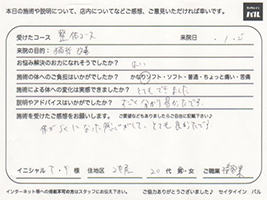 本日の施術や説明について、店内についてなどご感想、ご意見いただければ幸いです。
受けたコース 整体コース 来院日 ・1・5
来院の目的:
お悩み解決のお力になれそうでしたか? はい
施術の体へのご負担はいかがでしたか? かなりソフト・ソフト・普通・ちょっと痛い・苦痛
施術による体への変化は実感できましたか? とてもできました
説明やアドバイスはいかがでしたか? すごく分かり易かったです。
施術を受けたご感想をお願いします。 ご要望などもありましたらご自由に記載下さい
体がらくになった感じがして、とても良かったです
イニシャル T・Y 様 住地区 20代 男・女 ご職業
インターネット等への掲載不可の方はスタッフにお伝え下さい。 ご協力ありがとうございました♪ セイタイイン バル